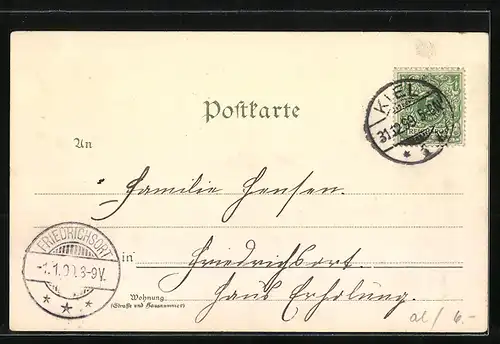 KIEL
31.12.99.
Postkarte
An
Familie Hensen.
FRIEDRICHSORT
-1.1.00. 8-9V.
in Friedrichsort.
Haus Erholung.
Wohnung
(Straße und Hausnummer)
6.-